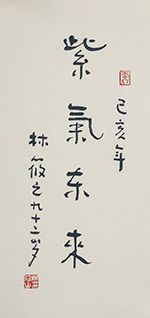 己亥年
紫氣东來
林筱之九十二岁